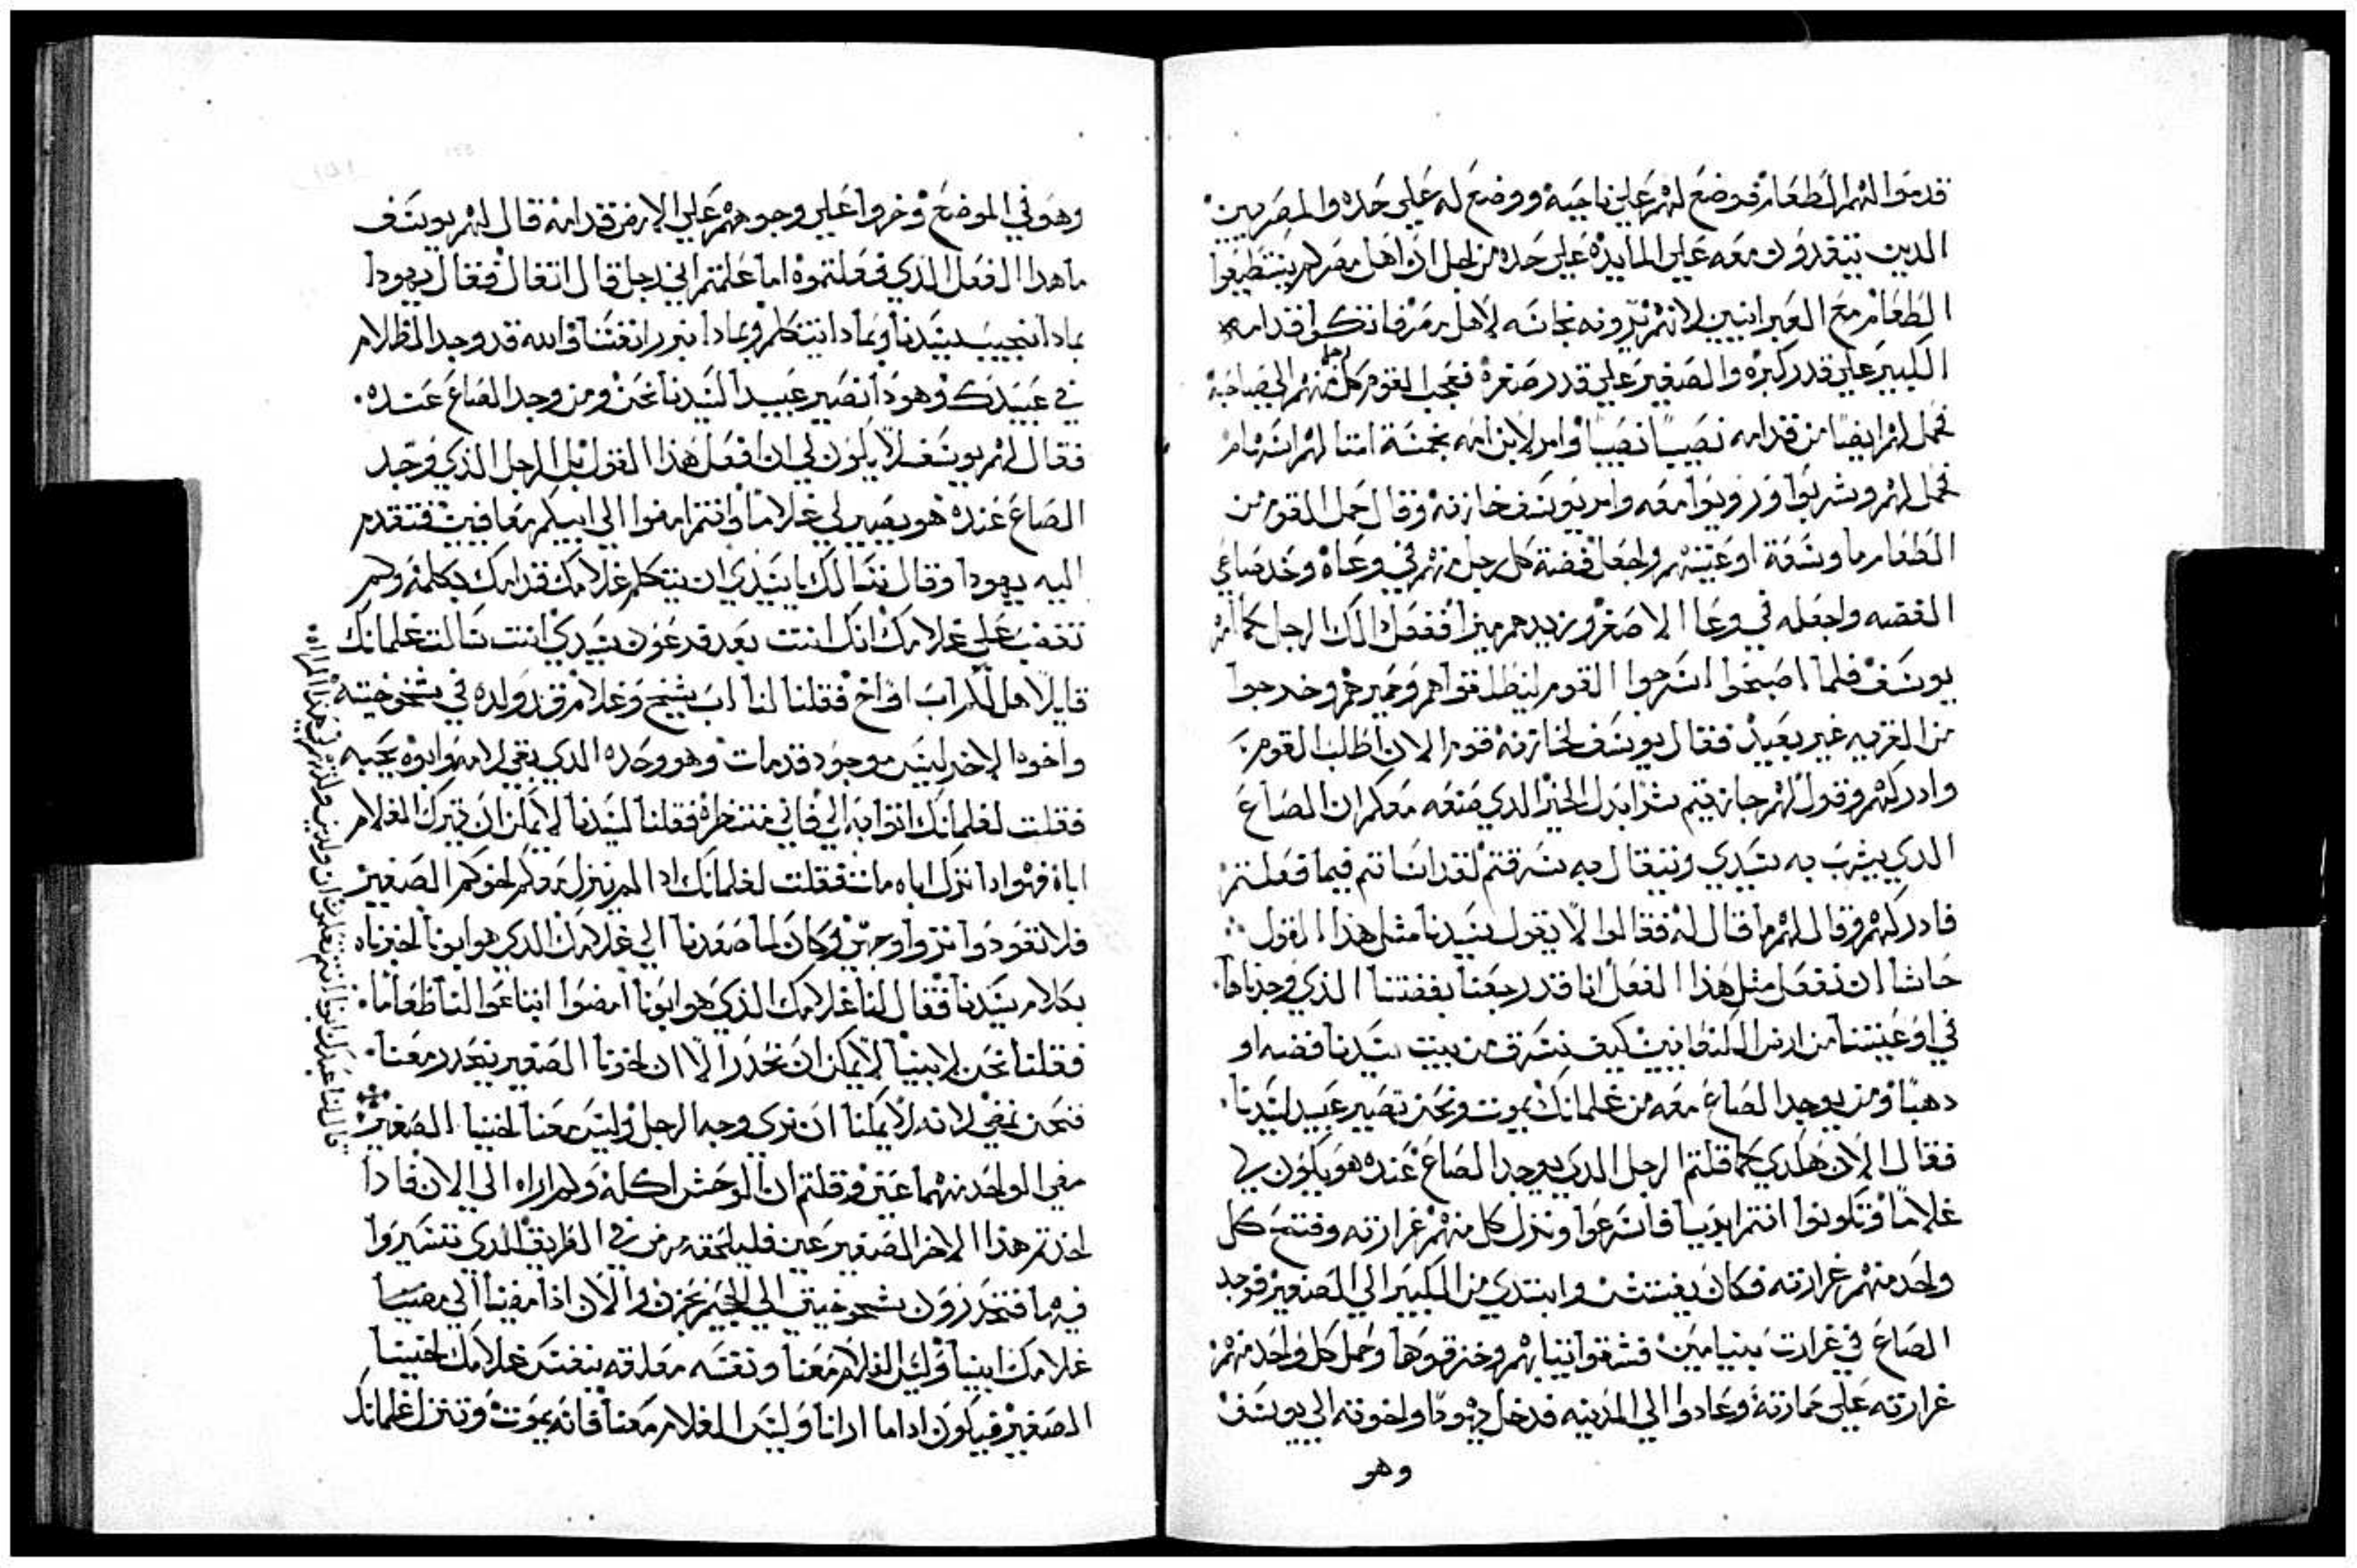 قدموا لهم الطعام فوضع لهم علي ناحيه ووضع له علي حده والمصريين
الدين يتغدون معه علي المايده علي حده من اجل ان اهل مصر لم يستطيعوا
الطعام مع العبرانيين لانهم يرونه نجاسه لاهل مصر فاتكوا قدامه
الكبير علي قدر كبره والصغير علي قدر صغره فعجب القوم كل رجل منهم الي صاحبه
فحمل لهم ايضا من قدامه نصيبا نصيبا وامر لابن امه بخمسة امثالهم اسهام
فحمل لهم وشربوا ورويوا معه وامر يوسف خازنه وقال حمل القوم من
الطعام ما وسعة اوعيتهم واجعل فضة كل رجل منهم في وعاه وخد صاعي
الفضه واجعله في وعا الاصغر وزيدهم ميرا ففعل دالك الرجل كما امره
يوسف فلما اصبحوا اسرجوا القوم لينطلقوا هم وحميرهم وخرجوا
من القريه غير بعيد فقال يوسف لخازنه قوم الان اطلب القوم
وادركهم وقول لهم جازيتم شرا بدل الخير الدي صنعه معكم ان الصاع
الدي يشرب به سيدي ويتفال به سرقتم لقد اساتم فيما فعلتم
فادركهم وقال لهم ما قال له فقالوا لا يقول سيدنا مثل هذا القول
حاشا ان نفعل مثل هذا الفعل انا قد رجعنا بفضتنا الذي وجدناها
في اوعيتنا من ارض الكنعانيين كيف نسرق من بيت سيدنا فضه او
دهبا ومن يوجد الصاع معه من غلمانك يموت ونحن نصير عبيد لسيدنا
فقال الان هكدي كما قلتم الرجل الدي يوجد الصاع عنده هو يكون لي
غلاما وتكونوا انتم ابريا فاسرعوا ونزل كل منهم غرارته وفتح كل
واحد منهم غرارته فكان يفتش وابتدي من الكبير الي الصغير فوجد
الصاع في غرارت بنيامين فشقوا ثيابهم وخزقوها وحمل كل واحد منهم
غرارته علي حمارته وعادوا الي المدينه فدخل يهودا واخوته الي يوسف
وهو
وهو في الموضع وخروا علي وجوههم علي الارض قدامه قال لهم يوسف
ما هدا الفعل الذي فعلتموه اما علمتم اني رجل قال اتفال فقال يهودا
بمادا نجيب سيدنا وبمادا نتكلم وبمادا نبرر انفسنا والله قد وجد الظلام
في عبيدك وهودا نصير عبيدا لسيدنا نحن ومن وجد الصاع عنده
فقال لهم يوسف لا يكون لي ان افعل هذا القول بل الرجل الذي وجد
الصاع عنده هو يصير لي غلاما وانتم امضوا الي ابيكم معافيين فتقدم
اليه يهودا وقال نسالك يا سيدي ان يتكلم غلامك قدامك بكلمه ولا
تغضب علي غلامك انك انت بعد فرعون سيدي انت سالت غلمانك
قايلا هل لكم اب او اخ فقلنا لنا اب شيخ وغلام قد ولده في شيخوخيته
واخوه الاخر ليس موجود قد مات وهو وحده الدي بقي لامه وابوه يحبه
فقلت لغلمانك اتوا به الي فاني منتظره فقلنا لسيدنا لا يمكن ان يترك الغلام
اباه فهوا ادا ترك اباه مات فقلت لغلمانك ادا لم ينزل معكم اخوكم الصغير
فلا تعودوا تروا وجهي وكان لما صعدنا الي غلامك الذي هو ابونا اخبرناه
بكلام سيدنا فقال لنا غلامك الذي هو ابونا امضوا ابتاعوا لنا طعاما
فقلنا نحن لابينا لا يمكن ان نحدر الا ان اخونا الصغير ينحدر معنا
فنحن نمضي لانه لا يمكنا ان نري وجه الرجل وليس معنا اخينا الصغير
مضي الواحد منهما عني وقلتم ان الوحش اكله ولم اراه الي الان فادا
اخدتم هذا الاخر الصغير عني فليلحقه مرض في الطريق الدي تسيروا
فيها فتحدرون شيخوخيتي الي الجحيم بحزن والان اذا مضينا الي مضينا
غلامك ابينا وليس الغلام معنا ونفسه معلقه بنفس غلامك اخينا
الصغير فيكون ادا ما ارانا وليس الغلام معنا فانه يموت وتنزل غلمانك
قال لنا عبدك ابونا انتم تعلمون ان ولدين ولدتهم لي هذا المراه